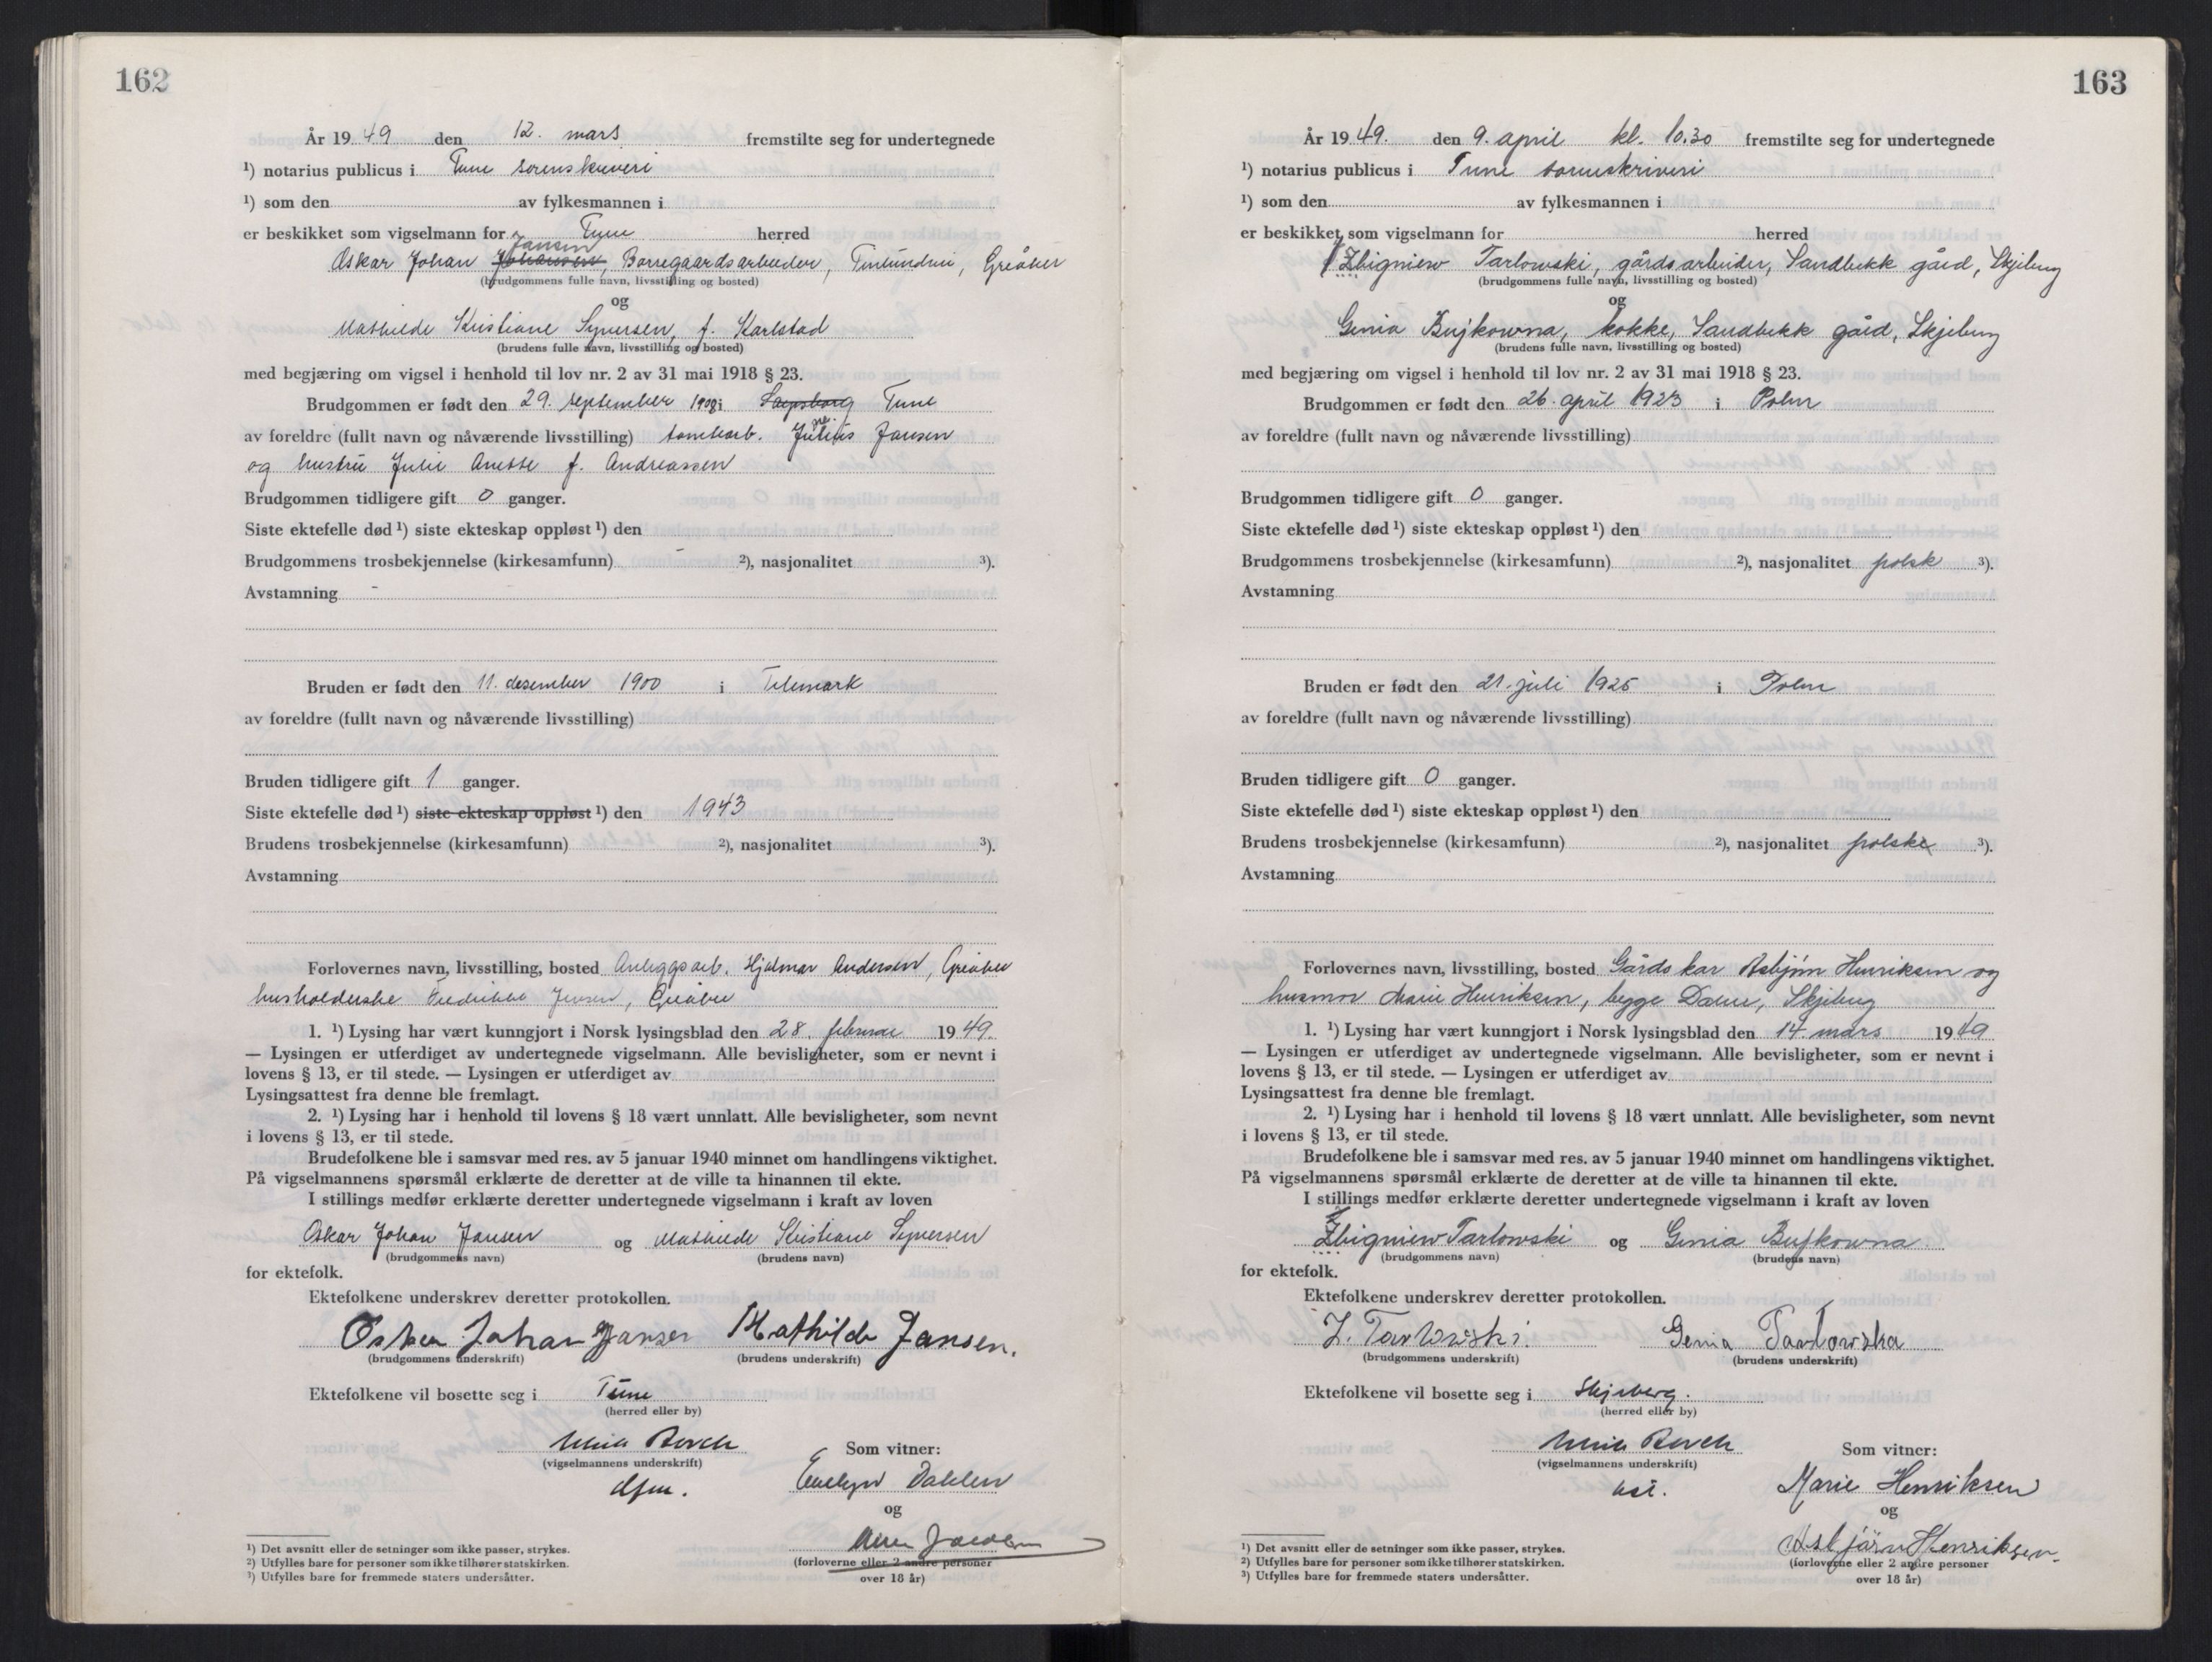 162
År 1949 den 12. mars fremstilte seg for undertegnede
¹) notarius publicus i Tune sorenskriveri
¹) som den av fylkesmannen i
er beskikket som vigselmann for Tune herred
Jansen
Oskar Johan Johansen, Borregaardsarbeider, Tindlundvei, Greåker
(brudgommens fulle navn, livsstilling og bosted)
og
Mathilde Kristiane Syversen, f. Karlstad
(brudens fulle navn, livsstilling og bosted)
med begjæring om vigsel i henhold til lov nr. 2 av 31 mai 1918 § 23.
Brudgommen er født den 29. september 1908 i Sarpsborg Tune
av foreldre (fullt navn og nåværende livsstilling) tomtearb. Julius Jansen
og hustru Julie Anette f. Andreassen
Brudgommen tidligere gift 0 ganger.
Siste ektefelle død ¹) siste ekteskap oppløst ¹) den
Brudgommens trosbekjennelse (kirkesamfunn) - ²), nasjonalitet ³).
Avstamning -
Bruden er født den 11. desember 1900 i Telemark
av foreldre (fullt navn og nåværende livsstilling)
Bruden tidligere gift 1 ganger.
Siste ektefelle død ¹) siste ekteskap oppløst ¹) den 1943
Brudens trosbekjennelse (kirkesamfunn) ²), nasjonalitet ³).
Avstamning
Forlovernes navn, livsstilling, bosted Anleggsarb. Hjalmar Andersen, Greåker
husholderske Fredrikke Jensen, Greåker
1. ¹) Lysing har vært kunngjort i Norsk lysingsblad den 28. februar 1949.
— Lysingen er utferdiget av undertegnede vigselmann. Alle bevisligheter, som er nevnt i
lovens § 13, er til stede. — Lysingen er utferdiget av
Lysingsattest fra denne ble fremlagt.
2. ¹) Lysing har i henhold til lovens § 18 vært unnlatt. Alle bevisligheter, som nevnt
i lovens § 13, er til stede.
Brudefolkene ble i samsvar med res. av 5 januar 1940 minnet om handlingens viktighet.
På vigselmannens spørsmål erklærte de deretter at de ville ta hinannen til ekte.
I stillings medfør erklærte deretter undertegnede vigselmann i kraft av loven
Oskar Johan Jansen og Mathilde Kristiane Syversen
(brudgommens navn) (brudens navn)
for ektefolk.
Ektefolkene underskrev deretter protokollen.
Oskar Johan Janser Mathilde Jansen.
(brudgommens underskrift) (brudens underskrift)
Ektefolkene vil bosette seg i Tune
(herred eller by)
Borch Som vitner:
(vigselmannens underskrift)
Evelyn Dahlen
og
(forloverne eller 2 andre personer
over 18 år)
¹) Det avsnitt eller de setninger som ikke passer, strykes.
²) Utfylles bare for personer som ikke tilhører statskirken.
³) Utfylles bare for fremmede staters undersåtter.
163
År 1949. den 9. april kl. 10.30 fremstilte seg for undertegnede
¹) notarius publicus i Tune sorenskriveri
¹) som den av fylkesmannen i
er beskikket som vigselmann for herred
Zbigniew Tarlowski, gårdsarbeider, Sandbekk gård, Skjeberg
(brudgommens fulle navn, livsstilling og bosted)
og
Genia Bujkowna, kokke, Sandbekk gård, Skjeberg
(brudens fulle navn, livsstilling og bosted)
med begjæring om vigsel i henhold til lov nr. 2 av 31 mai 1918 § 23.
Brudgommen er født den 26. april 1923 i Polen
av foreldre (fullt navn og nåværende livsstilling)
Brudgommen tidligere gift 0 ganger.
Siste ektefelle død ¹) siste ekteskap oppløst ¹) den
Brudgommens trosbekjennelse (kirkesamfunn) ²), nasjonalitet polsk ³).
Avstamning
Bruden er født den 21. juli 1925 i Polen
av foreldre (fullt navn og nåværende livsstilling)
Bruden tidligere gift 0 ganger.
Siste ektefelle død ¹) siste ekteskap oppløst ¹) den
Brudens trosbekjennelse (kirkesamfunn) ²), nasjonalitet polsk ³).
Avstamning
Forlovernes navn, livsstilling, bosted Gårdskar Asbjørn Henriksen og
husmor Marie Henriksen, begge Skjeberg
1. ¹) Lysing har vært kunngjort i Norsk lysingsblad den 14. mars 1949
— Lysingen er utferdiget av undertegnede vigselmann. Alle bevisligheter, som er nevnt i
lovens § 13, er til stede. — Lysingen er utferdiget av
Lysingsattest fra denne ble fremlagt.
2. ¹) Lysing har i henhold til lovens § 18 vært unnlatt. Alle bevisligheter, som nevnt
i lovens § 13, er til stede.
Brudefolkene ble i samsvar med res. av 5 januar 1940 minnet om handlingens viktighet.
På vigselmannens spørsmål erklærte de deretter at de ville ta hinannen til ekte.
I stillings medfør erklærte deretter undertegnede vigselmann i kraft av loven
Zbigniew Tarlowski og Genia Bujkowna.
(brudgommens navn) (brudens navn)
for ektefolk.
Ektefolkene underskrev deretter protokollen.
Z. Tarlowski. Genia Tarlowska
(brudgommens underskrift) (brudens underskrift)
Ektefolkene vil bosette seg i Skjeberg.
(herred eller by)
Borch Som vitner:
(vigselmannens underskrift)
Marie Henriksen
og
Asbjørn Henriksen.
(forloverne eller 2 andre personer
over 18 år)
¹) Det avsnitt eller de setninger som ikke passer, strykes.
²) Utfylles bare for personer som ikke tilhører statskirken.
³) Utfylles bare for fremmede staters undersåtter.